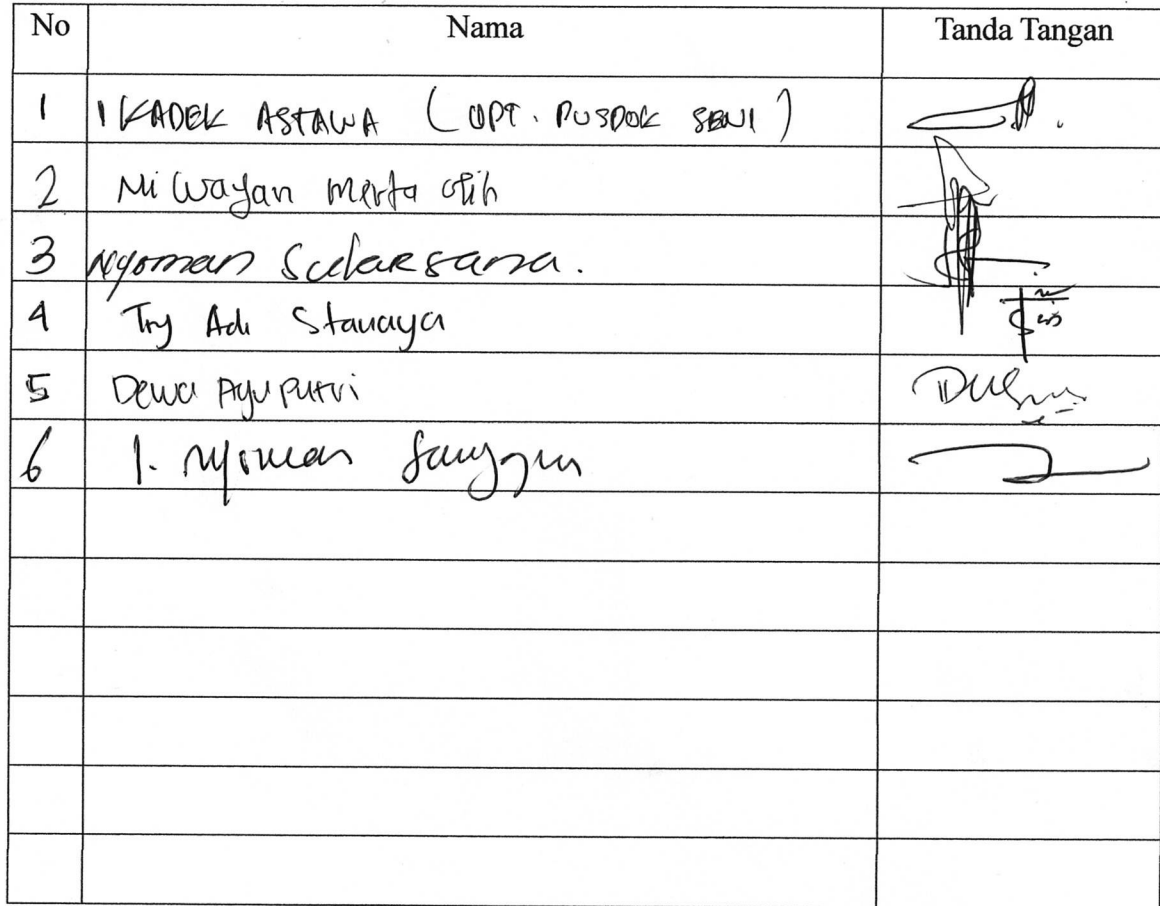 No Nama Tanda Tangan
1 I KADEK ASTAWA (UPT. PUSDOK SENI)
2 Ni Wayan Merta
3 Nyoman Sudarsana.
4 Try Adi
5 Dewa Ayu Putri
6 I. Nyoman